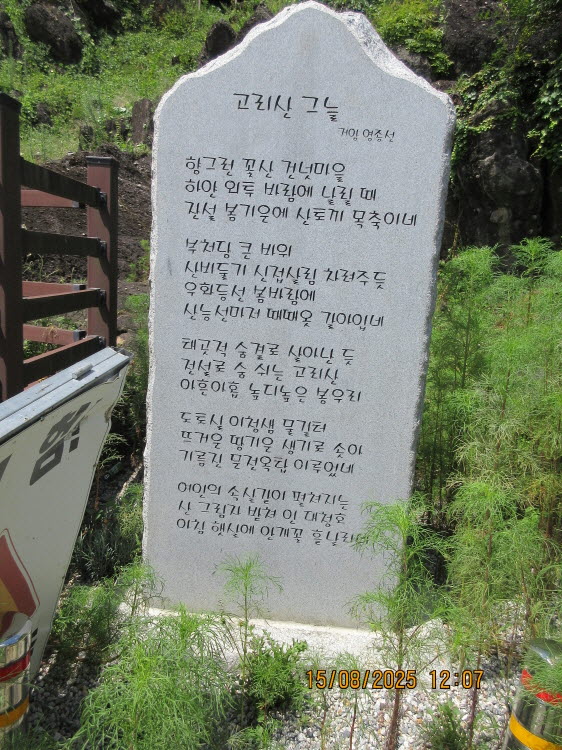 고리산 그늘
향그런 꽃산 건넛마을
하얀 외투 바람에 날릴 때
진설 봄기운에 산토끼 목축이네
부처담 큰 바위
산비둘기 신접살림 차려주듯
우화등선 봄바람에
산능선마저 때때옷 갈아입네
태곳적 숨결로 살아난 듯
전설로 숨 쉬는 고리산
아흔아홉 높디높은 봉우리
도토실 이청샘 물길터
뜨거운 땅기운 생기로 솟아
기름진 문전옥답 이루었네
여인의 속살같이 펼쳐지는
산 그림자 받쳐 인 대청호
아침 햇살에 안개꽃 흩날리
15/08/2025 12:07